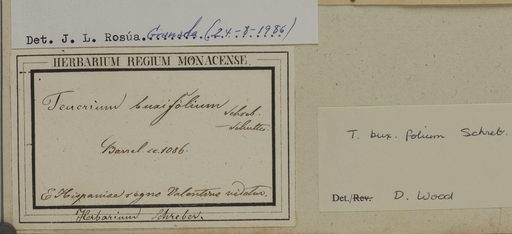 Det. J. L. Rosúa. Granada (24-8-1986)
HERBARIUM REGIUM MONACENSE.
Teucrium buxifolium Schreb.
Barrel. ic. 1086.
E Hispaniae regno Valentino videtur.
Herbarium Schreber.
T. bux. folium Schreb.
Det./Rev. D. Wood